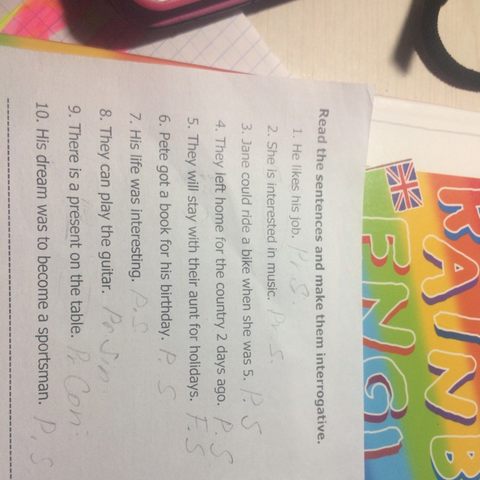 Read the sentences and make them interrogative.
1. He likes his job. Pr S
2. She is interested in music. Pr S.
3. Jane could ride a bike when she was 5. P. S
4. They left home for the country 2 days ago. P. S
5. They will stay with their aunt for holidays. F. S
6. Pete got a book for his birthday. P. S
7. His life was interesting. P. S
8. They can play the guitar. Pr Sim
9. There is a present on the table. Pr Con
10. His dream was to become a sportsman. P. S
RAINB
ENGL